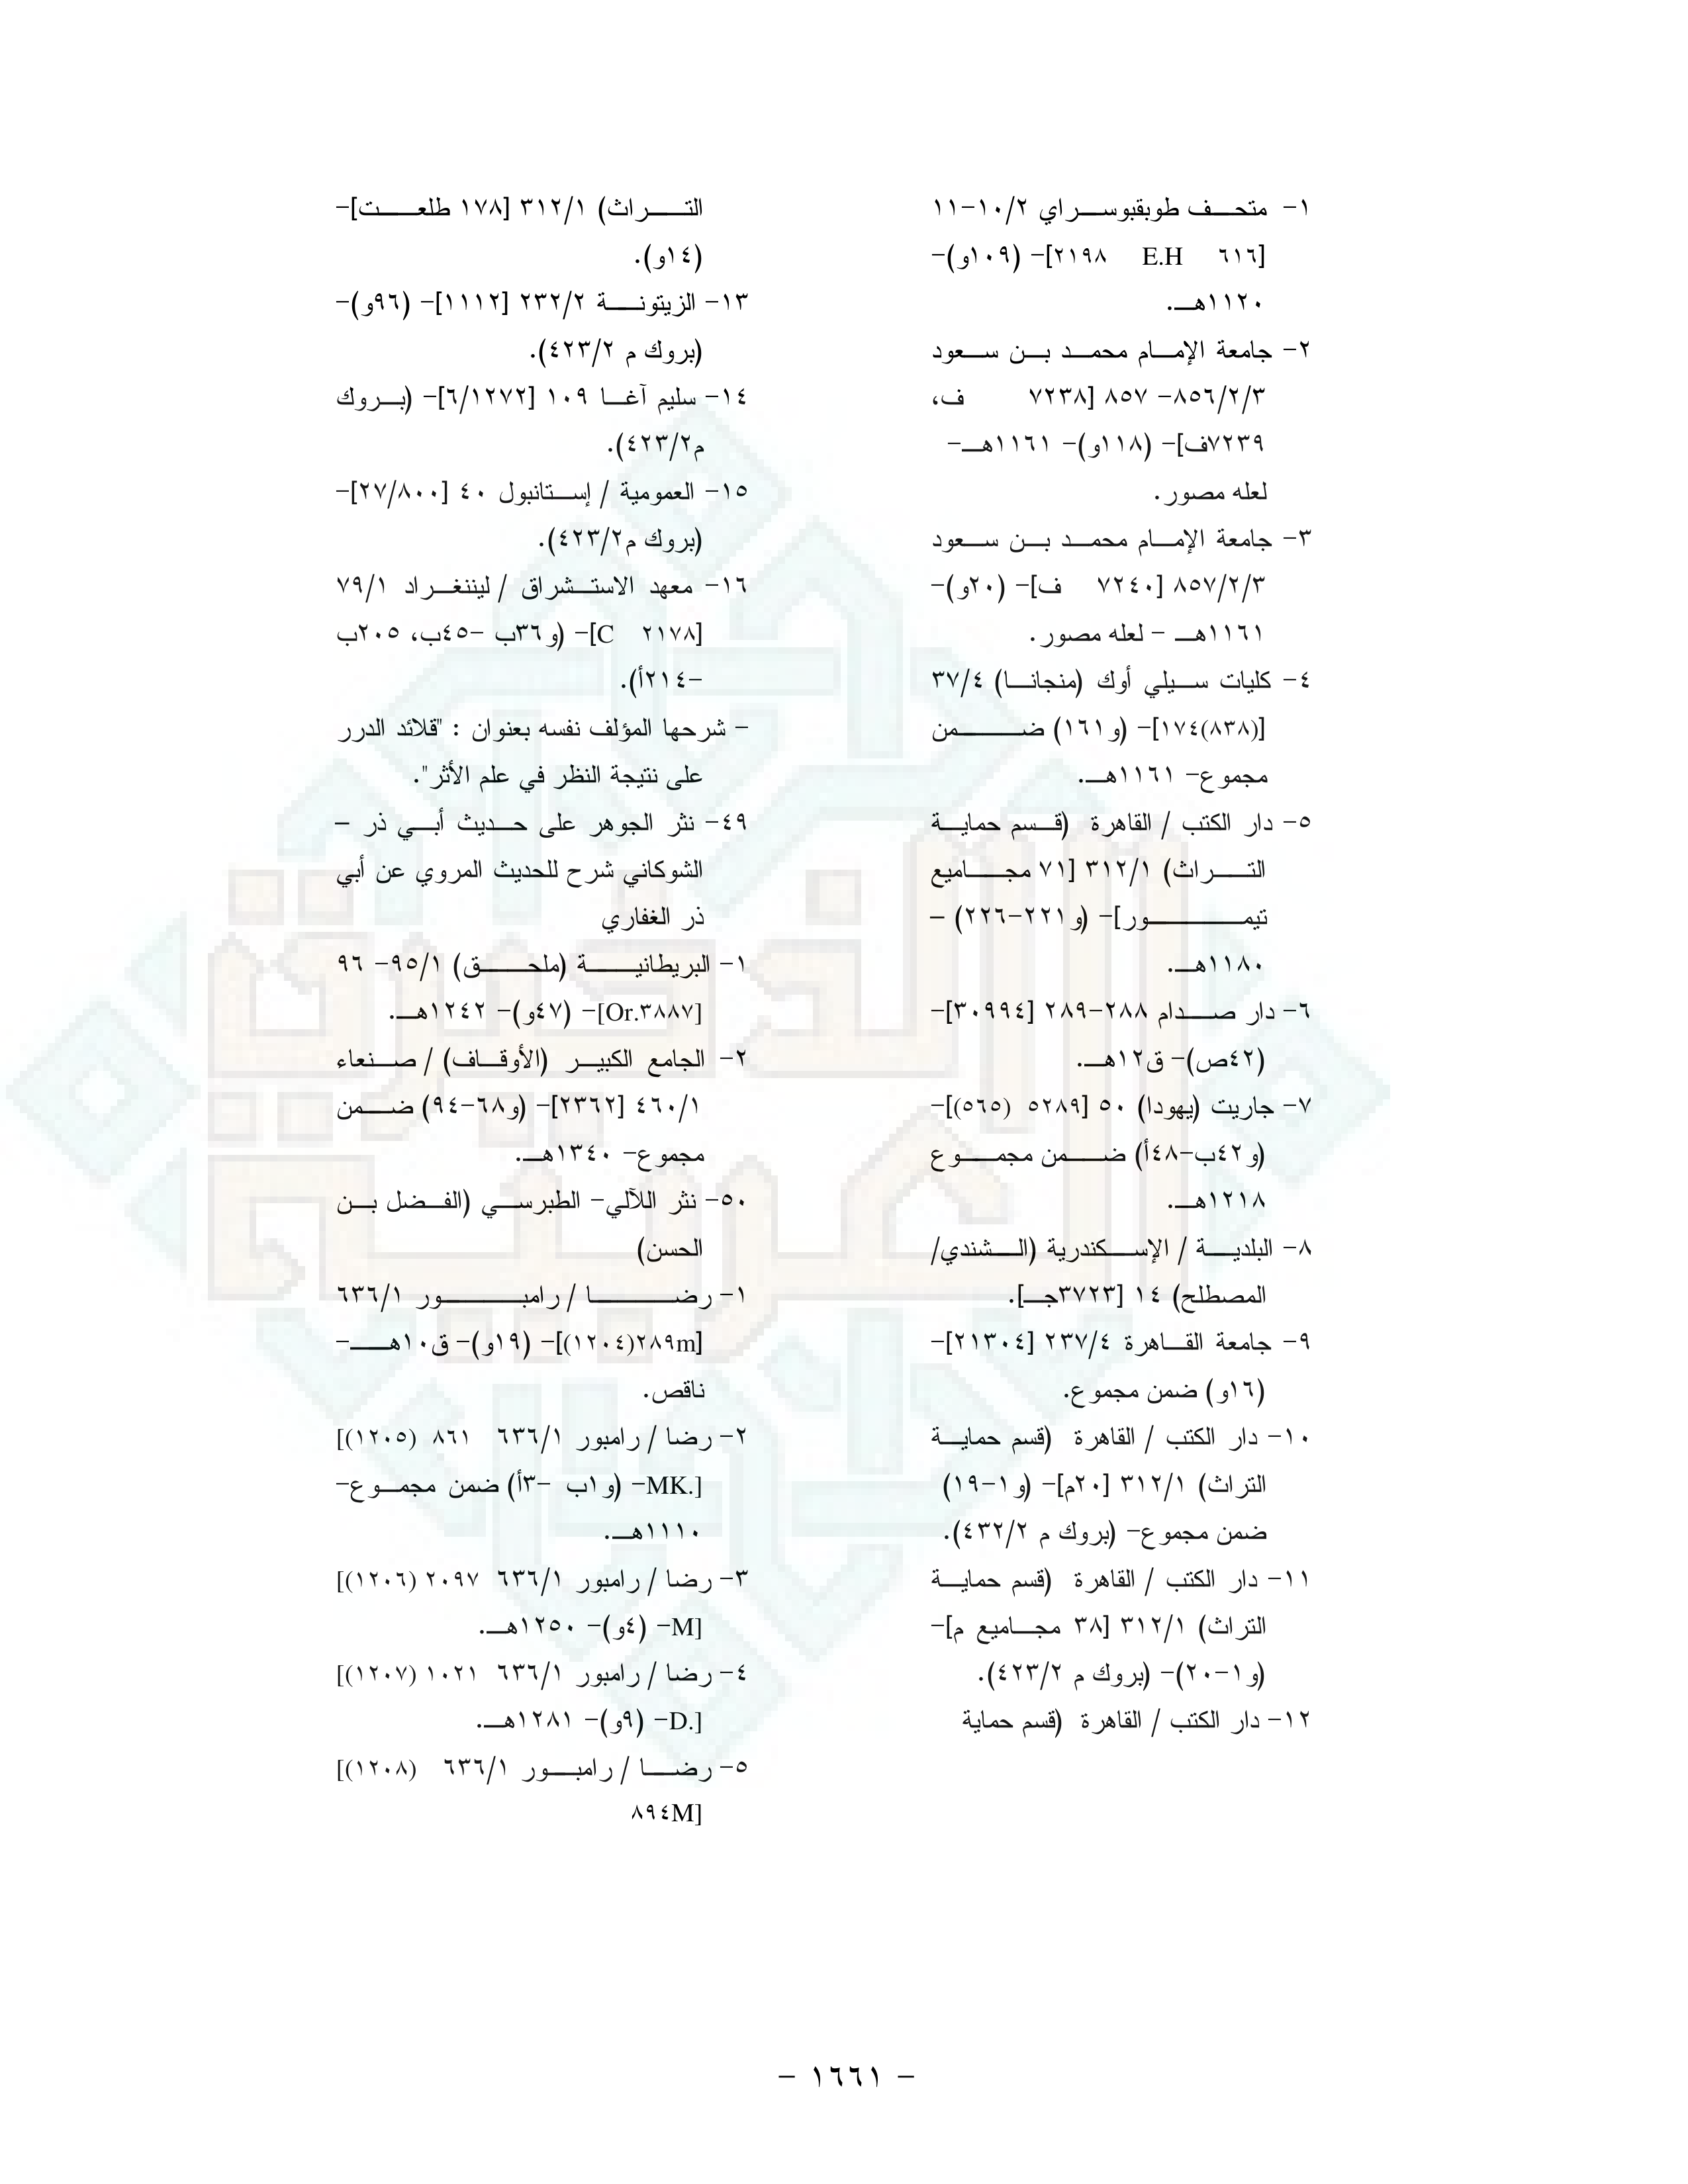 ١- متحف طوبقبوسراي ١٠/٢-١١
[٦١٦ E.H ٢١٩٨]- (١٠٩و)-
١١٢٠هـ.
٢- جامعة الإمام محمد بن سعود
٨٥٦/٢/٣- ٨٥٧ [٧٢٣٨ ف،
٧٢٣٩ف]- (١١٨و)- ١١٦١هـ-
لعله مصور.
٣- جامعة الإمام محمد بن سعود
٨٥٧/٢/٣ [٧٢٤٠ ف]- (٢٠و)-
١١٦١هـ - لعله مصور.
٤- كليات سيلي أوك (منجانا) ٣٧/٤
[(٨٣٨)١٧٤]- (و١٦١) ضمن
مجموع- ١١٦١هـ.
٥- دار الكتب / القاهرة (قسم حماية
التراث) ٣١٢/١ [٧١ مجاميع
تيمور]- (و٢٢١-٢٢٦) -
١١٨٠هـ.
٦- دار صدام ٢٨٨-٢٨٩ [٣٠٩٩٤]-
(٤٢ص)- ق١٢هـ.
٧- جاريت (يهودا) ٥٠ [٥٢٨٩ (٥٦٥)]-
(و٤٢ب-٤٨أ) ضمن مجموع
١٢١٨هـ.
٨- البلدية / الإسكندرية (الشندي/
المصطلح) ١٤ [٣٧٢٣جـ].
٩- جامعة القاهرة ٢٣٧/٤ [٢١٣٠٤]-
(١٦و) ضمن مجموع.
١٠- دار الكتب / القاهرة (قسم حماية
التراث) ٣١٢/١ [٢٠م]- (و١-١٩)
ضمن مجموع- (بروك م ٤٣٢/٢).
١١- دار الكتب / القاهرة (قسم حماية
التراث) ٣١٢/١ [٣٨ مجاميع م]-
(و١-٢٠)- (بروك م ٤٢٣/٢).
١٢- دار الكتب / القاهرة (قسم حماية
التراث) ٣١٢/١ [١٧٨ طلعت]-
(١٤و).
١٣- الزيتونة ٢٣٢/٢ [١١١٢]- (٩٦و)-
(بروك م ٤٢٣/٢).
١٤- سليم آغا ١٠٩ [٦/١٢٧٢]- (بروك
م٤٢٣/٢).
١٥- العمومية / إستانبول ٤٠ [٢٧/٨٠٠]-
(بروك م٤٢٣/٢).
١٦- معهد الاستشراق / ليننغراد ٧٩/١
[C ٢١٧٨]- (و٣٦ب -٤٥ب، ٢٠٥ب
-٢١٤أ).
- شرحها المؤلف نفسه بعنوان : "قلائد الدرر
على نتيجة النظر في علم الأثر".
٤٩- نثر الجوهر على حديث أبي ذر –
الشوكاني شرح للحديث المروي عن أبي
ذر الغفاري
١- البريطانية (ملحق) ٩٥/١- ٩٦
[Or.٣٨٨٧]- (٤٧و)- ١٢٤٢هـ.
٢- الجامع الكبير (الأوقاف) / صنعاء
٤٦٠/١ [٢٣٦٢]- (و٦٨-٩٤) ضمن
مجموع- ١٣٤٠هـ.
٥٠- نثر اللآلي- الطبرسي (الفضل بن
الحسن)
١- رضا / رامبور ٦٣٦/١
[٢٨٩m(١٢٠٤)]- (١٩و)- ق١٠هـ-
ناقص.
٢- رضا / رامبور ٦٣٦/١ ٨٦١ (١٢٠٥)]
[.MK- (و١ب -٣أ) ضمن مجموع-
١١١٠هـ.
٣- رضا / رامبور ٦٣٦/١ ٢٠٩٧ (١٢٠٦)]
[M- (٤و)- ١٢٥٠هـ.
٤- رضا / رامبور ٦٣٦/١ ١٠٢١ (١٢٠٧)]
[.D- (٩و)- ١٢٨١هـ.
٥- رضا / رامبور ٦٣٦/١ (١٢٠٨)]
[٨٩٤M
- ١٦٦١ -